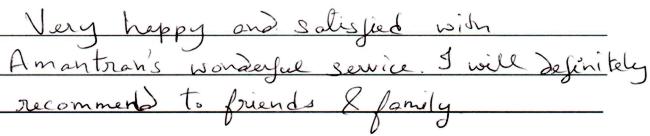 Very happy and satisfied with
Amantran's wonderful service. I will definitely
recommend to friends & family